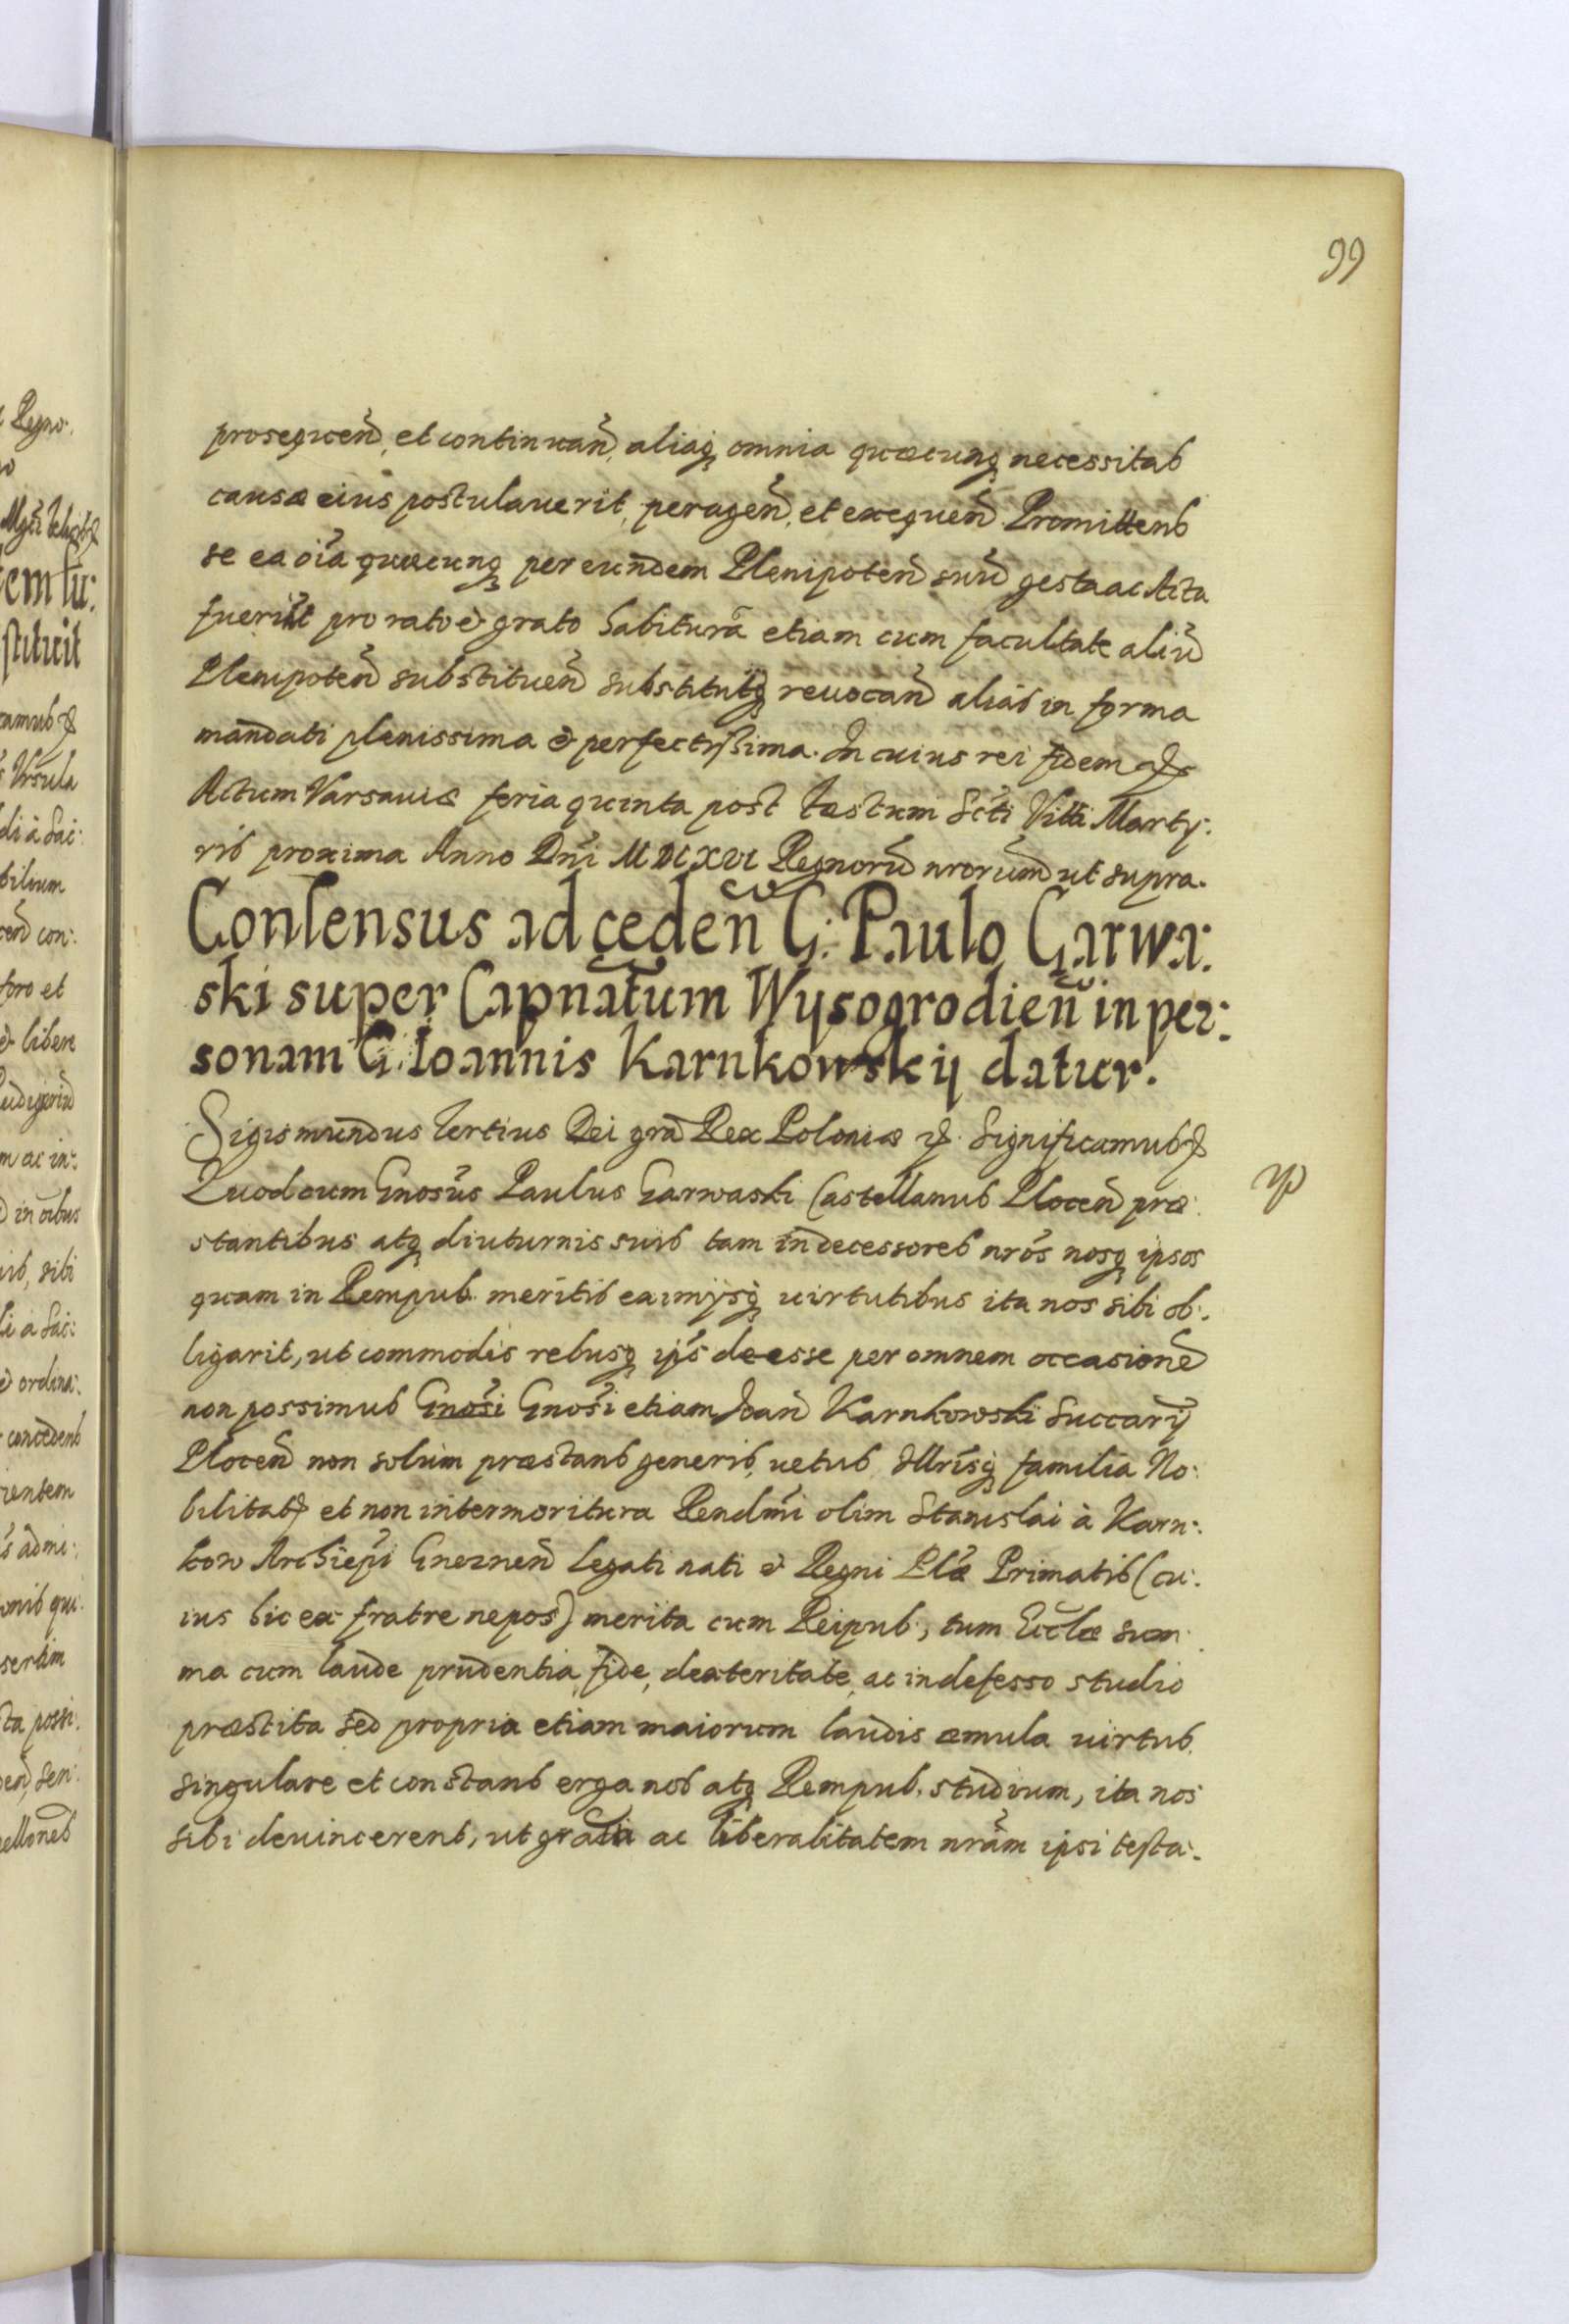 99
prosequen̄, et continuan̄, aliaq̨ omnia quæcunq̨ necessitas
causæ eius postulauerit, peragen̄, et exequen̄. Promittens
se ea oı̃a quæcunq̨ per eundem Plenipoten̄ suū gesta ac Acta
fuerint pro rato & grato habiturā etiam cum facultate aliū
Plenipoten̄ substituen̄ substitutq̨ reuocan̄ aliàs in forma
mandati plenissima & perfectissima. In cuius rei fidem &
Actum Varsauiæ feria quinta post festum Scti Viti Marty:
ris proxima Anno Dni MDCXVI Regnorū nrorum ut supra.
Consensus ad ceden̄ G. Paulo Garwa:
ski super Capnatum Wysogrodien̄ in per:
sonam G. Ioannis Karnkowskij datur.
Sigismundus Tertius Dei grã Rex Poloniæ & Significamus &
Quod cum Gnosus Paulus Garwaski Castellanus Plocen̄ præ:
stantibus atq̨ diuturnis suis tam in decessores nros nosq̨ ipsos
quam in Rempub. meritis eximijsq̨ uirtutibus ita nos sibi ob:
ligarit, ut commodis rebusq̨ ip̃s deesse per omnem occasionē
non possimus Gnosi Gnosi etiam Joan̄ Karnkowski Succarij
Plocen̄ non solùm præstans generis, uetus Illrisq̨ familia No:
bilitat & et non intermoritura Rendmi olim Stanislai à Karn:
kow Archiepi Gneznen̄ Legati nati & Regni Plæ Primatis (cu:
ius hic ex fratre nepos) merita cum Reipub:, tum Ecclæ sum
ma cum laude prudentia, fide, dexteritate, ac indefesso studio
præstita sed propria etiam maiorum laudis æmula uirtus
singulare et constans erga nos atq̨ Rempub. studium, ita nos
sibi deuincerent, ut gratia ac liberalitatem nram ipsi testa: